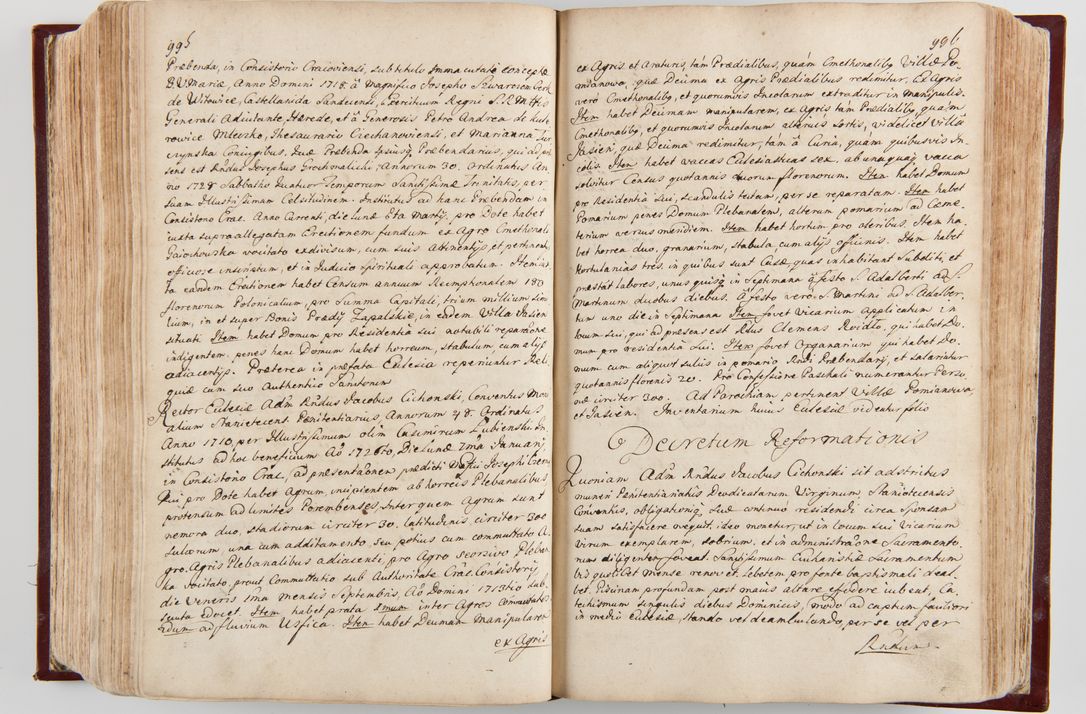 995
Præbenda, in Consistorio Cracoviensi, sub titulo Immaculatæ Conceptæ
B. V. Mariæ, Anno Domini 1718. â Magnifico Josepho Szwarcemberk
de Witowice, Castellanida Sandecensi, Exercituum Regni S. R. Mttis
Generali Adiutante Hærede, et â Generosis Petro Andrea de Kute-
rowice Mleczko, Thesaurario Ciechanoviensi, et Marianna
Coniugibus. Quæ Præbenda ipsius Præbendarius, qui ad præ-
sens est Rndus Josephus Grochonalicki, annorum 30. Ordinatus An-
no 1728 Sabbatho Quatuor Temporum Sanctissimæ Trinitatis, per
suam Illustrissimam Celsitudinem. Institutus ad hanc Præbendam in
Consistorio Crac. Anno Currenti, die Lunæ 8ta Martij. pro Dote habet
iuxta supra allegatam Erectionem fundum ex Agro Cmethonali
Gaiochowska vocitato exdivisum, cum suis attinentijs, et pertinentijs,
officiose inscriptum, et in Iudicio Spirituali approbatum. Item iux-
ta eandem Erectionem habet Censum annuum Reemptionalem 180
florenorum Polonicalium, pro Summa Capitale, trium millium simi-
lium, in et super Bonis Prædij Zapalskie, in eadem Villa Jasień
situati. Item habet Domum pro Residentia sui notabili reparatione
indigentem. penes hanc Domum habet horreum, stabulum cum alijs
adiacentijs. Præterea in præfata Ecclesia reperiuntur Reli-
quiæ cum suo Authentico Sanctorum
Rector Ecclesiæ Adm Rndus Jacobus Cichonski, Conventus Mon
alium Staniętecens. Pænitentiarius, Annorum 48. Ordinatus
Anno 1710, per Illustrissimum olim Casimirum Łubienski. In-
stitutus ad hoc beneficium Aô 1726to, Die Lunæ 7ma Januarij
in Consistorio Crac., ad præsentaonem prædicti Mgfci Josephi
Qui pro Dote habet Agrum, incipientem ab horreis Plebanalibus
protensum ad limites Porembenses, Inter quem Agrum sunt
nemora duo, stadiorum circiter 30. latitudinis circiter 300
sulcorum una cum additamento, seu potius cum commuttato A-
gro. Agris Plebanalibus adiacenti, pro Agro seorsivo Pleban-
ka vocitato, prout Commuttatio sub Authoritate Crac. Consistorij
die Veneris 1ma mensis Septembris, Aô Domini 1713tio sub-
secuta edocet. Item habet prata Imum inter Agros Comunitatis
2dum ad fluvium Uszfica. Item habet Decimam Manipularem
ex Agris
996
ex Agris et Araturis, tàm Prædialibus, quàm Cmethonalibus Villæ Po-
mianowa, quæ Decima ex Agris Prædialibus redimitur, Ex Agris
verò Cmethonalibus, et quorumvis Incolarum extraditur in manipulis.
Item habet Decimam manipularem, ex Agris tàm Prædialibus, quàm
Cmethonalibus, et quorumvis Incolarum alterius Sortis, videlicet Villæ
Jasień, quæ Decima redimitur, tàm â Curia, quàm quibusvis In-
colis. Item habet vaccas Ecclesiasticas sex, ab unaquaque vacca
solvitur Census quotannis duorum florenorum. Item habet Domum
pro Residentia sui, scandulis tectam, per se reparatam. Item habet
Pomarium penes Domum Plebanalem, alterum pomarium ad Cæme-
terium versus meridiem. Item habet hortum pro oleribus. Item ha-
bet horrea duo, granarium, stabula, cum alijs officinis. Item habet
Hortulanias tres in quibus sunt Casæ, quas inhabitant Subditi, et
præstat labores, unusquisque in Septimana â festo S. Adalberti ad S.
Martinum duobus diebus. â festo vero S. Martini ad S. Adalber-
tum uno die in Septimana. Item fovet Vicarium applicatum in
locum sui, qui ad præsens est Rdus Clemens Rzidło, qui habet Do-
mum pro residentia sui. Item fovet Organarium qui habet Do-
mum cum aliquot sulcis in pomario Rndi Præbendarij, et salariatur
quotannis florenis 20. Pro Confessione Paschali numerantur Perso-
næ circiter 300. Ad Parochiam pertinent Villæ Pomianowa,
et Jasień. Inventarium huius Ecclesiæ videatur folio
Decretum Reformationis
Quoniam Adm Rndus Jacobus Cichonski sit adstrictus
muneri Pænitentiariatûs Deodicatarum Virginum, Staniotecensis
Conventûs, obligationique suæ continuò residendi circa Sponsam
suam satisfacere nequit. ideo monetur, ut in locum sui Vicarium
virum exemplarem, sobrium, et in administraone Sacramento-
rum diligentem foveat. Sanctissimum Eucharistiæ Sacramentum
bis quolibet mense renovet. Lebetem pro fonte baptismali deal-
bet. Piscinam profundam post maius altare effodere iubeat, Ca-
techismum singulis diebus Dominicis, modo ad captum faciliori
in medio Ecclesiæ, stando vel deambulando, per se vel per
Rndum